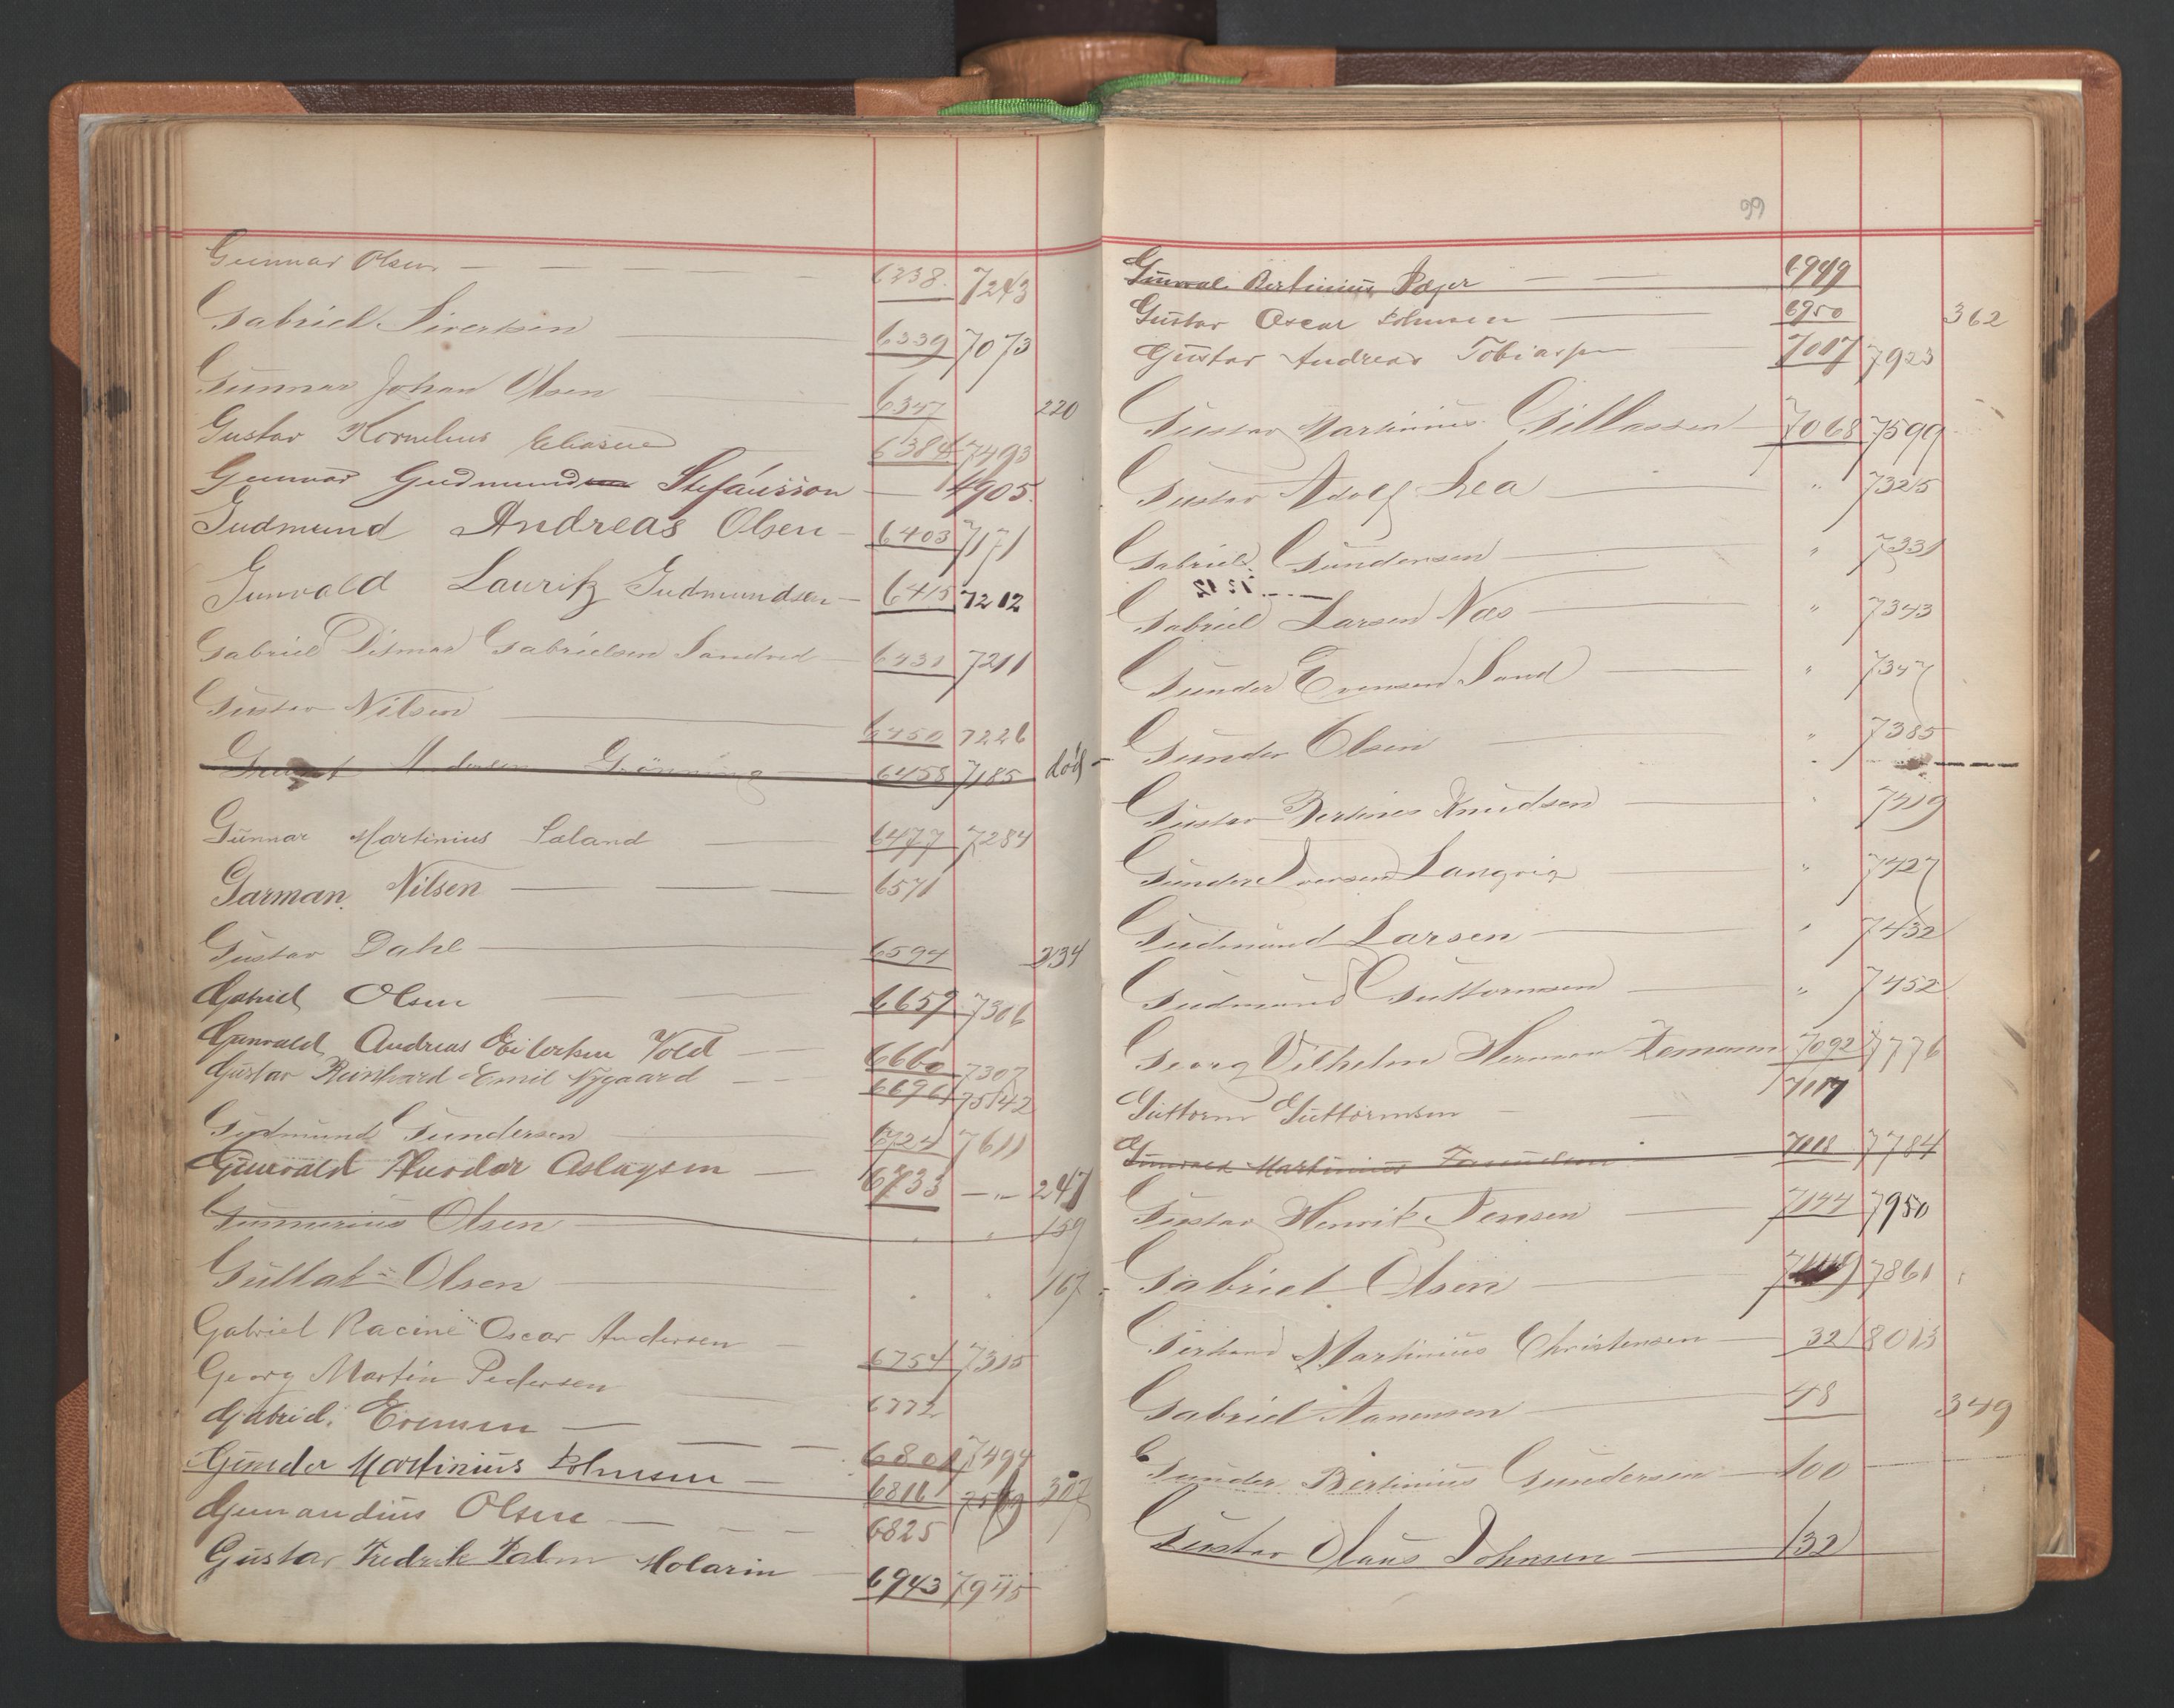 Gunnar Olsen — — — — 6238. 7243
Gabriel Sivertsen 6339 7073
Gunnar Johan Olsen 6347 220
Gustav Kornelius Eliasen 6384 7493
Gunnar Gudmundsen Stefánsson — 4905.
Gudmund Andreas Olsen — 6403 7171
Gunvald Lauritz Gudmundsen — 6415 7212
Gabriel Ditmar Gabrielsen Sandved 6431 7211
Gustav Nilsen 6450 7226
Andersen Grönning 6458 7185 död —
Gunnar Martinius Saland 6477 7284
Garman Nilsen — — — 6571
Gustav Dahl 6594 234
Gabriel Olsen 6659 7306
Gunvald Andreas Eilertsen Vold — 6660 7307
Gustav Reinhard Emil Nygaard — — 6696 7542
Gudmund Gundersen 6724 7611
Gunvald Theodor Aslagsen — 6733 — „ — 247
Gunnerius Olsen 159
Olsen 167
Gabriel Racine Oscar Andersen 6754 7315
Georg Martin Pedersen 6772
Gabriel Evensen — — — 6801 7494
Gunder Martinius Johnsen — 6816 307
Gunandius Olsen — — — 6825
Gustav Fredrik Palm Molarin 6943 7945
99
Bertinius Pæjer — — 6949
Gustav Oscar Johnsen — 6950 362
Gustav Andreas Tobiassen 7017 7923
Gustav Martinius Gillassen 7068 7599
Gustav Adolf Lea — „ 7325
Gabriel Gundersen „ 7331
Gabriel Larsen Næs „ 7343
Gunder Evensen Sand „ 7347
Gunder Olsen „ 7385
Gustav Bertines Knudsen 7419
Gunder Iversen Langvig „ 7427
Gudmund Larsen „ 7432
Gudmund Guttormsen „ 7452
Georg Vilhelm Herman 7092 7776
Guttorm Guttormsen — 7117
Gunvald Martinius 7118 7784
Gustav Henrik Jensen 7144 7950
Gabriel Olsen 7861
Gerhard Martinius Christensen — 32 8013
Gabriel Aanensen 48 349
Gunder Bertinius Gundersen — 100
Gustav Olaus Johnsen — 132